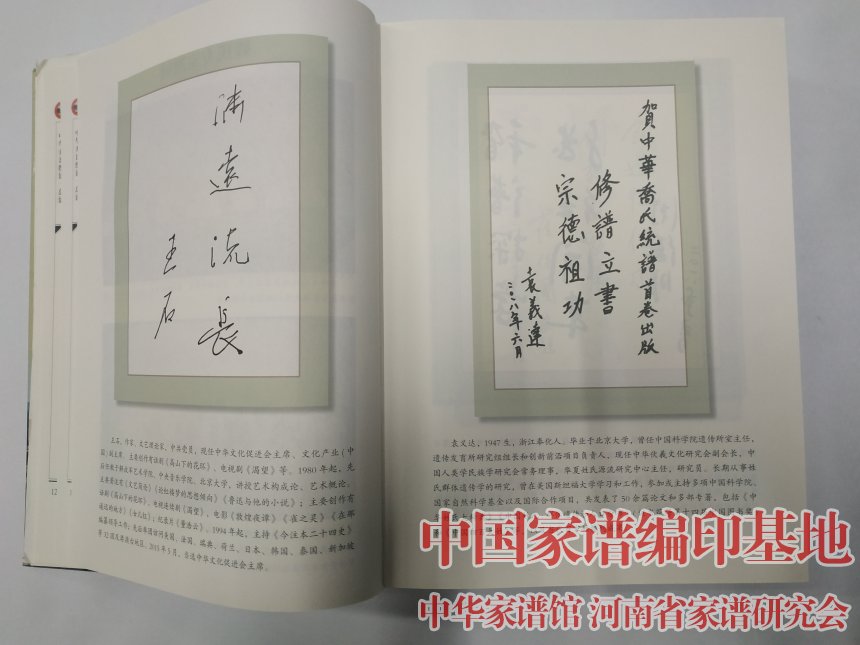 渊远流长
王石
王石，作家、文艺理论家，中共党员，现任中华文化促进会主席、文化产业（中
国）副主席。主要创作有话剧《高山下的花环》、电视剧《渴望》等。1980年起，先
后任教于解放军艺术学院、中央音乐学院、北京大学，讲授艺术构成论、艺术概论，
《论红楼梦的思想倾向》《鲁迅与他的小说》；主要创作有
话剧《高山下的花环》，电视连续剧《渴望》，电影《敦煌夜谭》《雀之灵》《在那
遥远的地方》《女儿红》；纪录片
1994年起，主持《今注本二十四史》
编纂领导工作。先后率团访问美国、法国、瑞典、荷兰、日本、韩国、泰国、新加坡
等32国及港澳台地区。2015年5月，当选中华文化促进会主席。
12
賀中華喬氏統譜首卷出版
修譜立書
宗德祖功
袁義達
二〇〇八年六月
袁义达，1947生，浙江奉化人。毕业于北京大学，曾任中国科学院遗传所室主任，
遗传发育所研究组组长和创新前沿项目负责人，现任中华伏羲文化研究会副会长，中
国人类学民族学研究会常务理事，华夏姓氏源流研究中心主任，研究员。长期从事姓
氏群体遗传学的研究，曾在美国斯坦福大学学习和工作，参加或主持多项中国科学院、
国家自然科学基金以及国际合作项目，共发表了50余篇论文和多部专著，包括《中
中国家谱编印基地
中华家谱馆 河南省家谱研究会